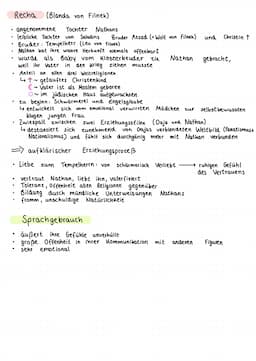 Recha (Blanda von Filnek)
• angenommene Tochter Nathans
• leibliche Tochter von Saladins Bruder Assad (= Wolf von Filnek) und Christin †
• Bruder: Tempelherr (Leu von Filnek)
• Nathan hat ihre wahre Herkunft niemals offenbart
• wurde als Baby vom Klosterbruder zu Nathan gebracht,
weil ihr Vater in den Krieg ziehen musste
• Anteil an allen drei Weltreligionen
↳ † → getauftes Christenkind
↳ Vater ist als Moslem geboren
↳ im jüdischen Haus aufgewachsen
• zu Beginn: Schwärmerei und Engelsglaube
• entwickelt sich vom emotional verwirrten Mädchen zur selbstbewussten
klugen jungen Frau
• Zwiespalt zwischen zwei Erziehungsstilen (Daja und Nathan)
↳ distanziert sich zunehmend von Dajas verblendeten Weltbild (Fanatismus
und fühlt sich durchgängig mehr mit Nathan verbunden
⇒ aufklärischer Erziehungsprozeß
• Liebe zum Tempelherrn: von schwärmerisch Verliebt → ruhigen Gefühl
des Vertrauens
• vertraut Nathan, liebt ihn,
• Toleranz, Offenheit allen Religionen gegenüber
• Bildung durch mündliche Unterweisungen Nathans
• fromm, unschuldige Natürlichkeit
Sprachgebrauch
• äußert ihre Gefühle unverhüllt
• große Offenheit in ihrer Kommunikation mit anderen Figuren
• sehr emotional